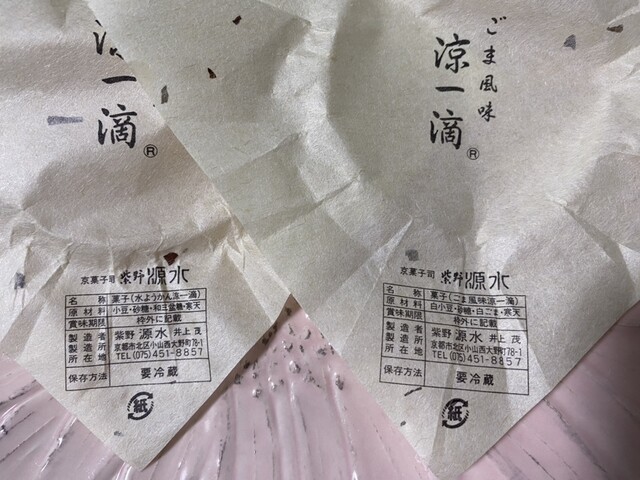 涼一滴
®
京菓子司 紫野源水
名称 菓子(水ようかん涼一滴)
原材料 小豆・砂糖・和三盆糖・寒天
賞味期限 枠外に記載
製造者 紫野 源水 井上 茂
製造所 京都市北区小山西大野町78-1
所在地 TEL(075)451-8857
保存方法 要冷蔵
紙
ごま風味
涼一滴
®
京菓子司 紫野源水
名称 菓子(ごま風味涼一滴)
原材料 白小豆・砂糖・白ごま・寒天
賞味期限 枠外に記載
製造者 紫野 源水 井上 茂
製造所 京都市北区小山西大野町78-1
所在地 TEL(075)451-8857
保存方法 要冷蔵
紙